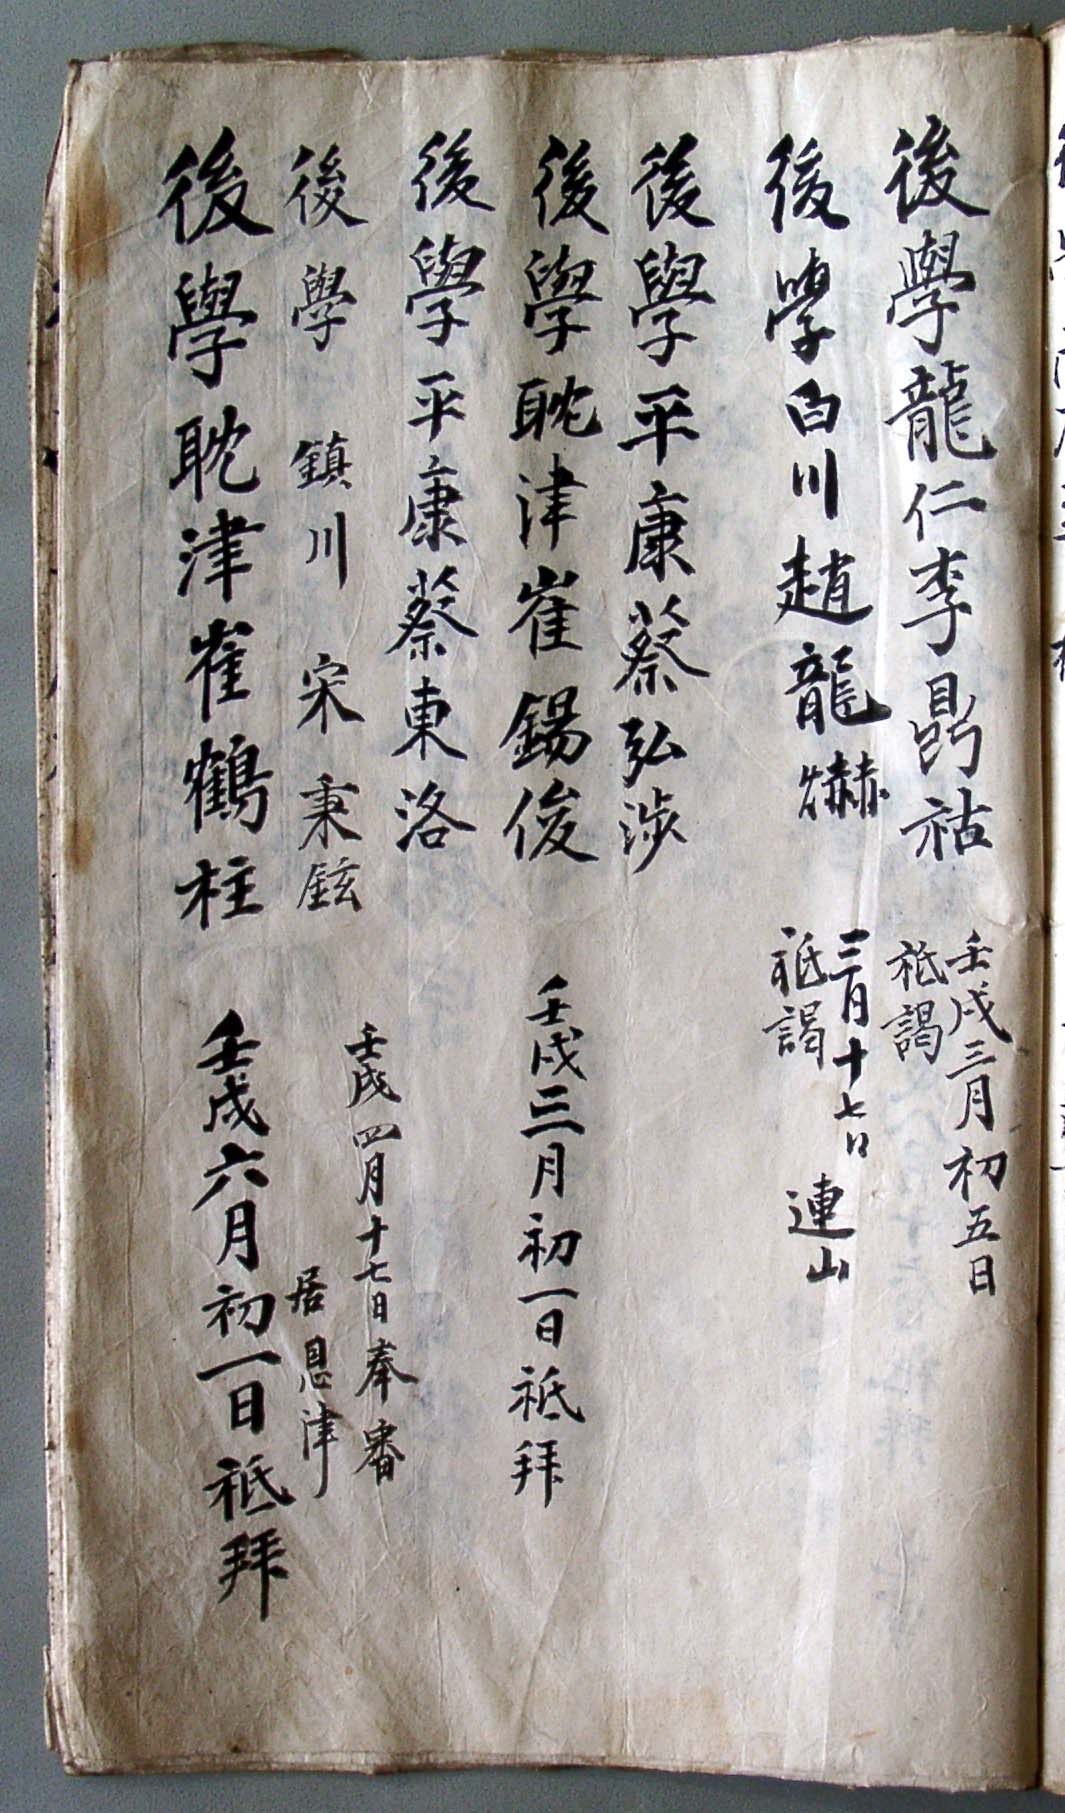 後學龍仁李鼎祜
壬戌三月初五日
祗謁
後學白川趙龍爀
三月十七日
祗謁
連山
後學平康蔡弘涉
後學耽津崔錫俊
壬戌三月初一日祗拜
後學平康蔡東洛
後學鎮川宋秉鉉
壬戌四月十七日奉審
居恩津
後學耽津崔鶴柱
壬戌六月初一日祗拜